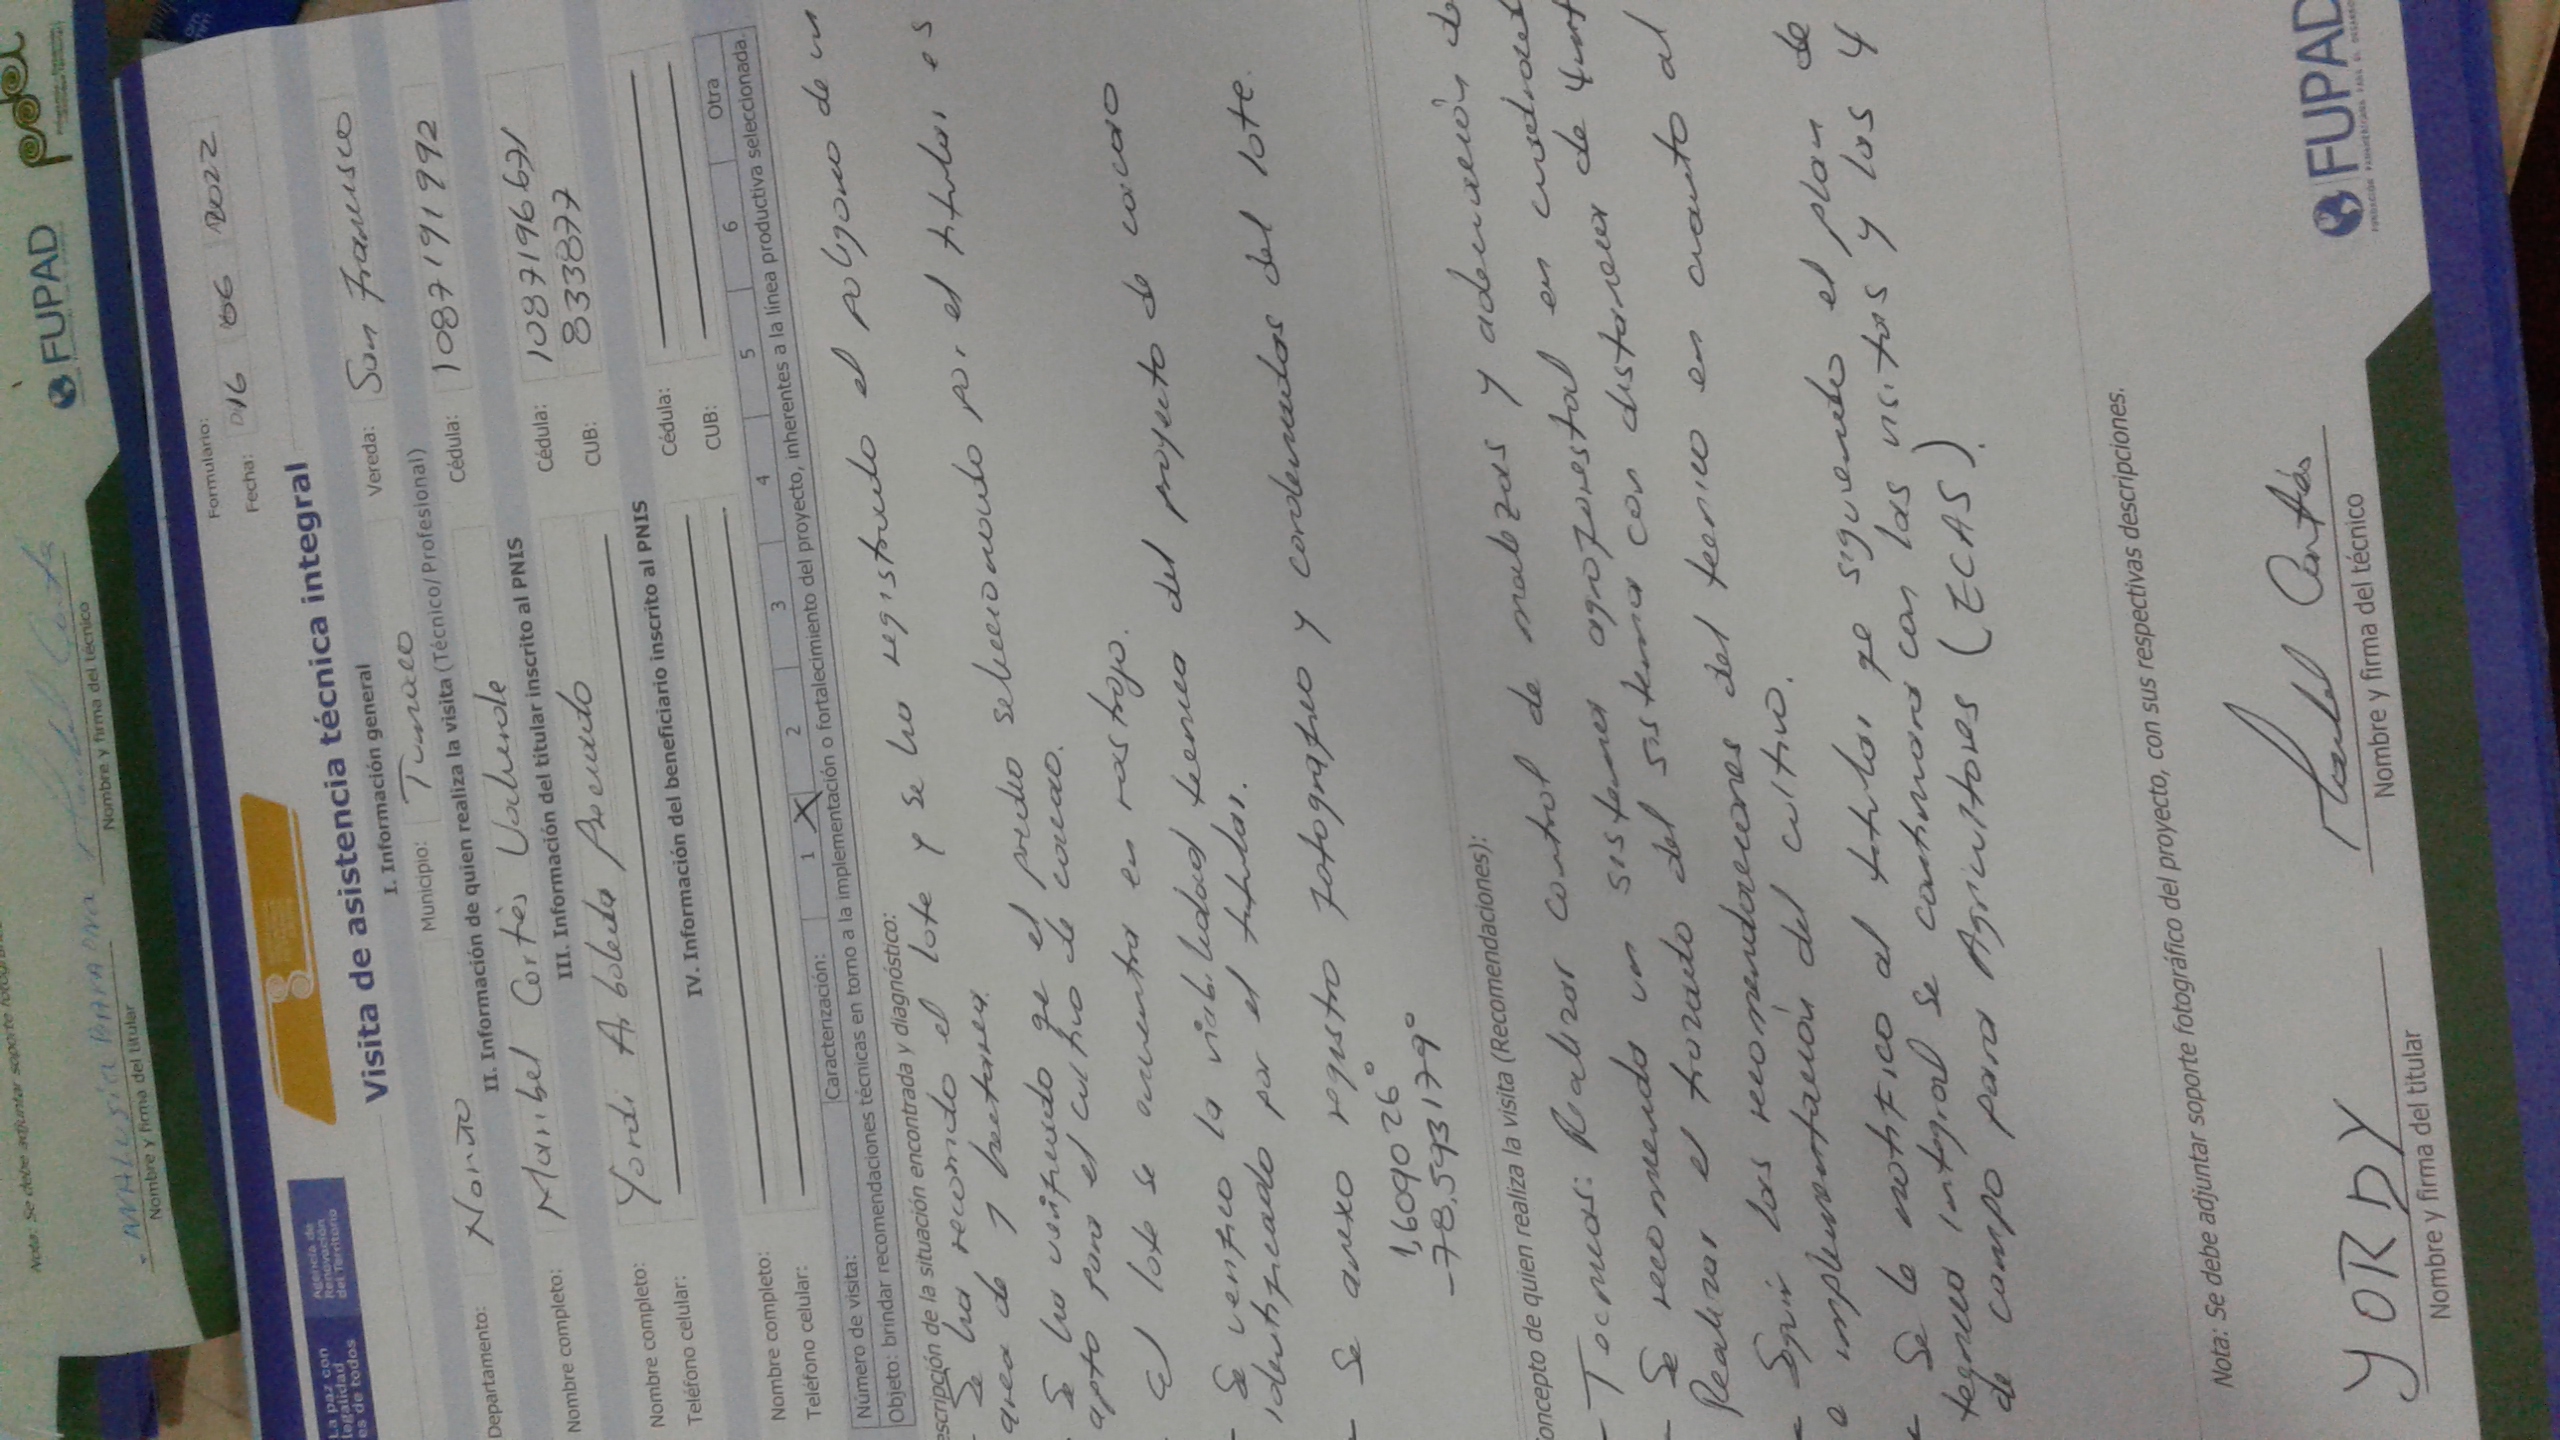 Nota: Se debe adjuntar soporte
Nombre y firma del titular
Nombre y firma del técnico
FUPAD
La paz con
legalidad
es de todos
Agencia de
Renovación
del Territorio
Formulario:
Fecha: 16 06 2022
Visita de asistencia técnica integral
I. Información general
Departamento: Nariño Municipio: Tumaco Vereda: San Francisco
II. Información de quien realiza la visita (Técnico/Profesional)
Nombre completo: Maribel Cortés Valverde Cédula: 1087191992
III. Información del titular inscrito al PNIS
Nombre completo: Yordi Arboleda Preciado Cédula: 1087196671
Teléfono celular: CUB: 833877
IV. Información del beneficiario inscrito al PNIS
Nombre completo: Cédula:
Teléfono celular: CUB:
Número de visita: Caracterización: 1 X 2 3 4 5 6 Otra
Objeto: brindar recomendaciones técnicas en torno a la implementación o fortalecimiento del proyecto, inherentes a la línea productiva seleccionada.
escripción de la situación encontrada y diagnóstico:
- Se ha recorrido el lote y se ha registrado el poligono de un
area de 1 hectarea.
- Se ha verificado qe el predio seleccionado por el titular es
apto para el cultivo de cacao.
El lote se encuentra en rastrojo.
- Se verifico la viabilidad tecnica del proyecto de cacao
identificado por el titular.
- Se anexo registro fotografico y cordenadas del lote.
1,609026°
-78,593179°
oncepto de quien realiza la visita (Recomendaciones):
- Tecnicas: Realizar control de malezas y adecuación de
- Se recomienda un sistema agroforestal en cuadrado
Realizar el trazado del sistema con distancia de 4mt
- Seguir las recomendaciones del tecnico en cuanto al
e implementación del cultivo.
- Se le notifico al titular qe siguiendo el plan de
tegnico integral se continuara con las visitas y las 4
de campo para Agricultores (ECAS).
Nota: Se debe adjuntar soporte fotográfico del proyecto, con sus respectivas descripciones.
YORDY
Nombre y firma del titular
Maribel Cortés
Nombre y firma del técnico
FUPAD